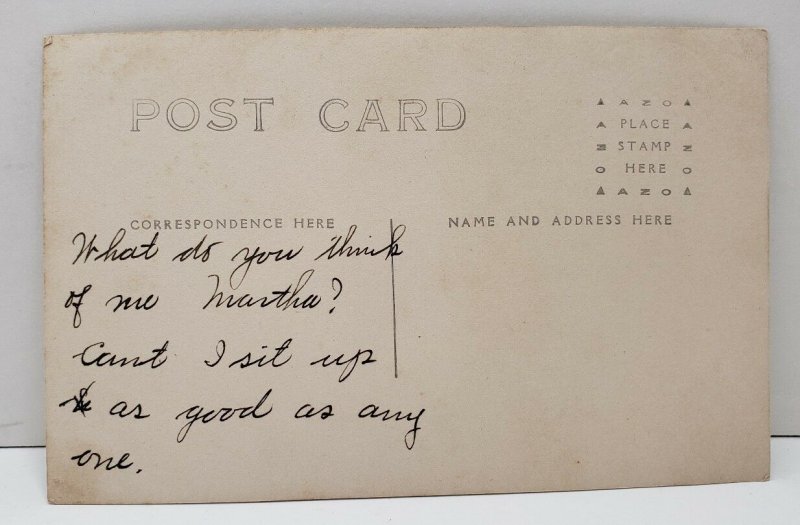 POST CARD
▲ A Z O ▲
A PLACE A
Z STAMP Z
O HERE O
▲ A Z O ▲
CORRESPONDENCE HERE
NAME AND ADDRESS HERE
What do you think
of me Martha?
Cant I sit up
as good as any
one.